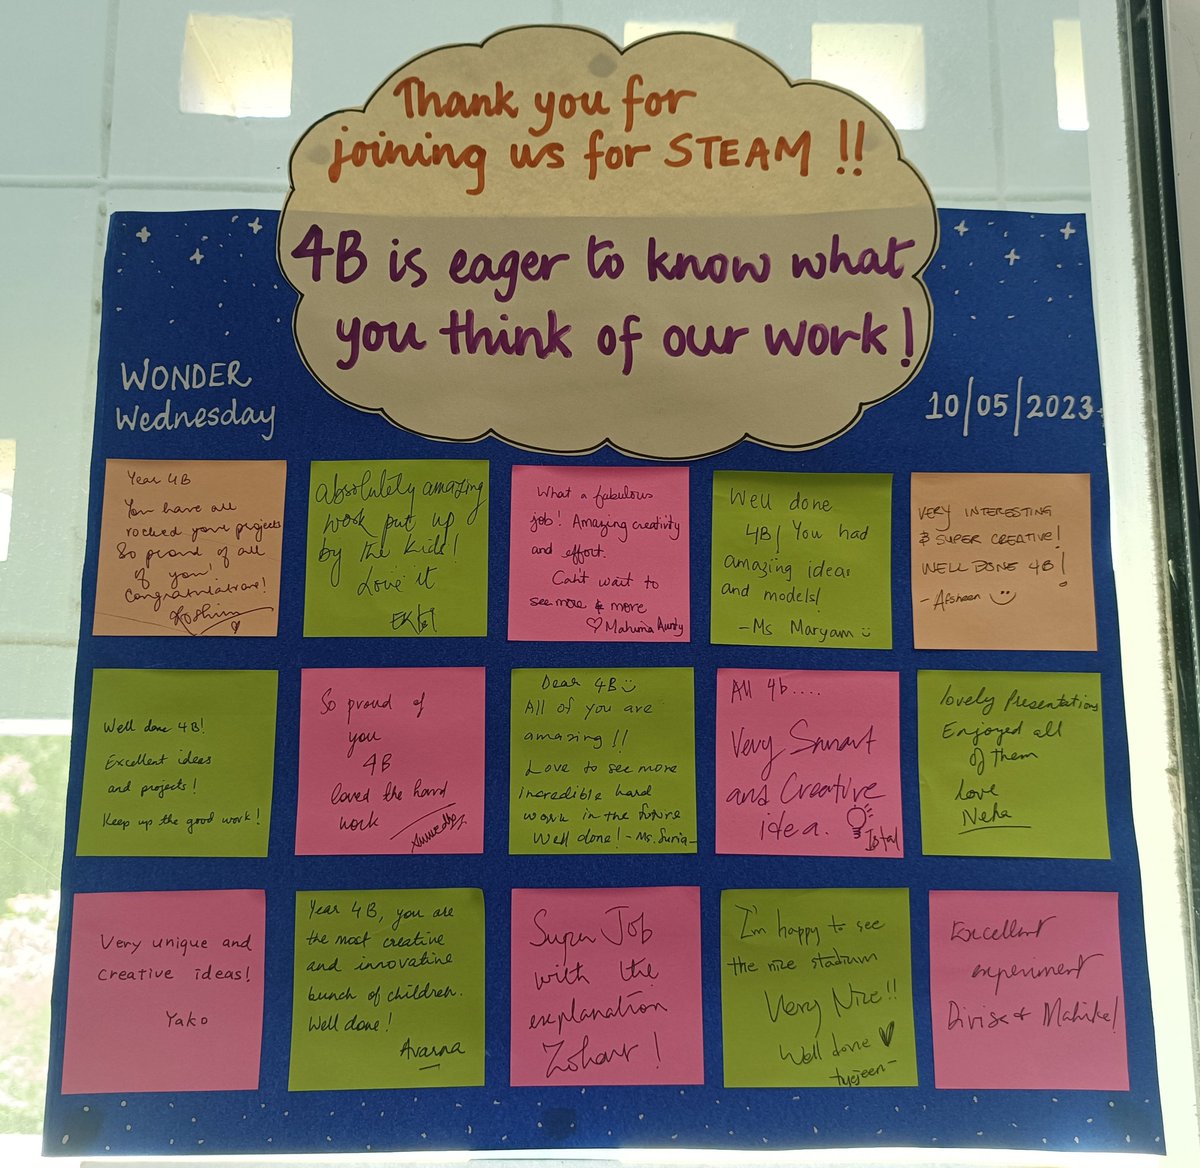 Thank you for
joining us for STEAM !!
4B is eager to know what
you think of our work!
WONDER
Wednesday
10/05/2023
Year 4B
You have all
rocked your projects
So proud of all
of you!
Congratulations!
Absolutely amazing
work put up
by the kids!
Love it
What a fabulous
job! Amazing creativity
and effort.
Can't wait to
see more & more
♡ Mahima Aunty
Well done
4B! You had
amazing ideas
and models!
-Ms Maryam
VERY INTERESTING
& SUPER CREATIVE!
WELL DONE 4B!
- Afsheen
Well done 4B!
Excellent ideas
and projects!
Keep up the good work!
So proud of
you
4B
loved the hard
work
Dear 4B
All of you are
amazing!!
Love to see more
incredible hard
work in the future
Well done! -Ms. Suria-
All 4b....
Very Smart
and Creative
idea.
lovely Presentations
Enjoyed all
of them
love
Neha
Very unique and
creative ideas!
Yako
Year 4B, you are
the most creative
and innovative
bunch of children.
Well done!
Avarna
Super Job
with the
explanation
Zohair!
I'm happy to see
the nice stadium
Very Nice!!
Well done ♥
Excellent
experiment